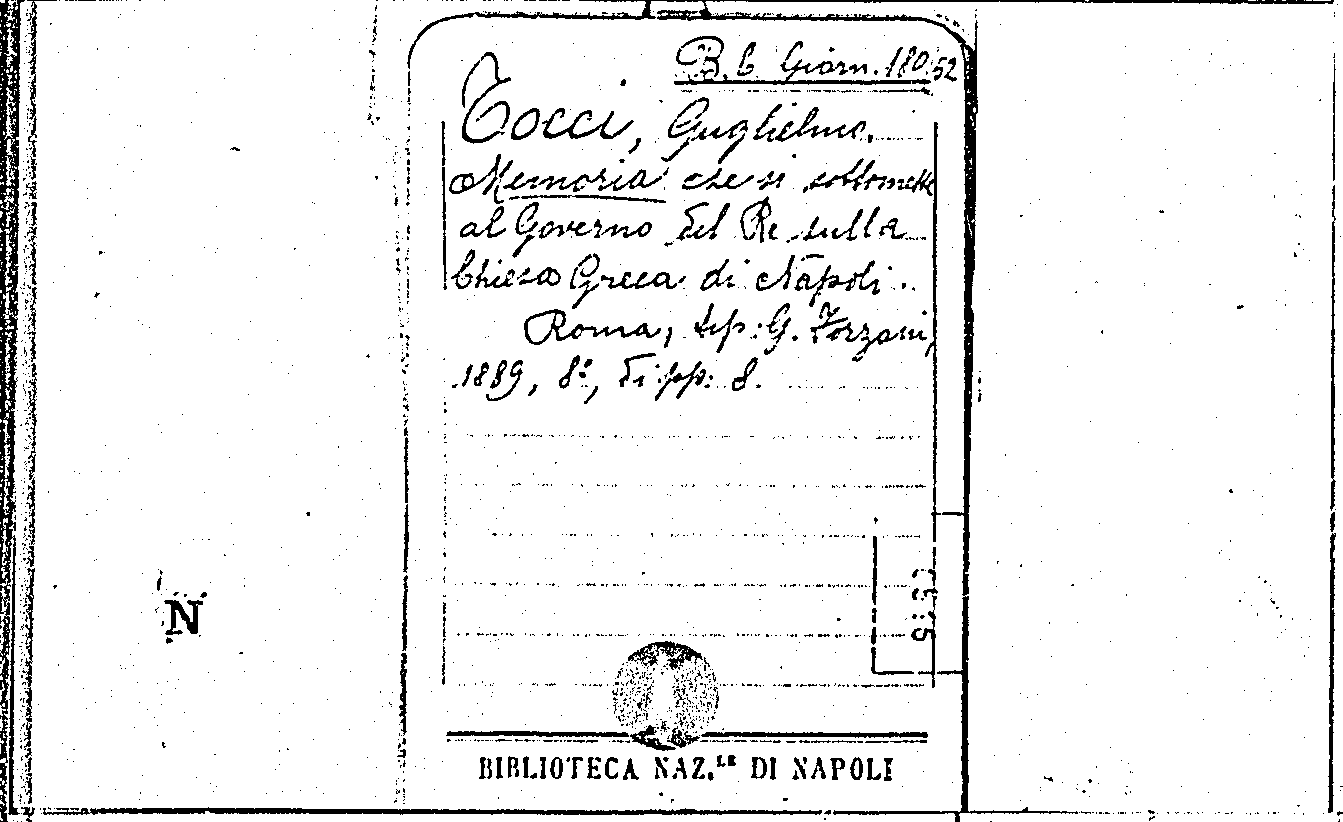 B. b Giorn. 180/52
Tocci, Guglielmo.
Memoria che si sottomette
al Governo del Re sulla
Chiesa Greca di Napoli.
Roma, tip: G. Forzani,
1889, 8°, di pp: 8.
N
BIBLIOTECA NAZ.LE DI NAPOLI